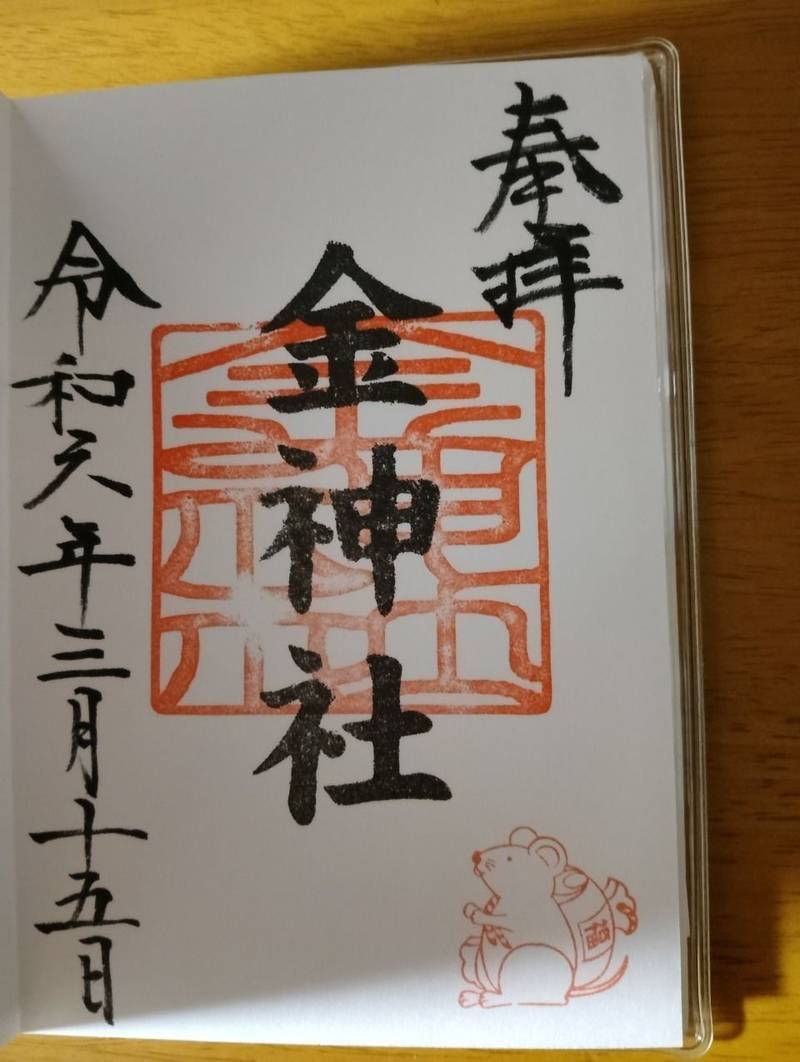 奉拝
金神社
令和六年三月十五日
福